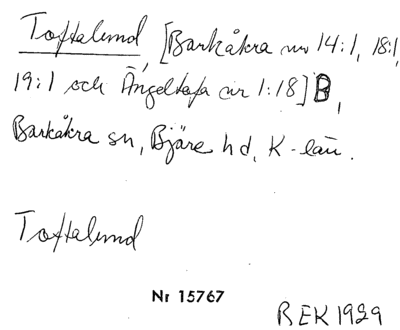 Toftalund, [Barkåkra nr 14:1, 18:1,
19:1 och Ängeltofa nr 1:18] B,
Barkåkra sn, Bjäre hd, K-län.
Toftalund
Nr 15767
REK 1929